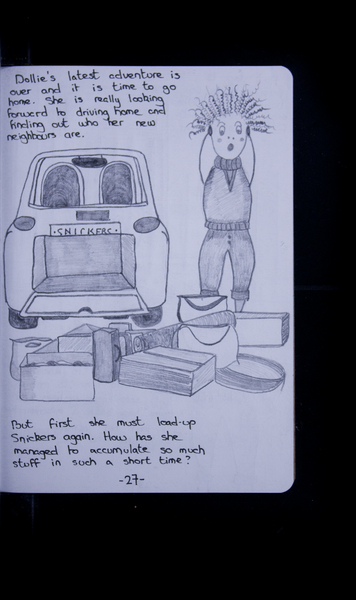 Dollie's latest adventure is
over and it is time to go
home. She is really looking
forward to driving home and
finding out who her new
neighbours are.
·SNICKERS·
But first she must load-up
Snickers again. How has she
managed to accumulate so much
stuff in such a short time?
-27-